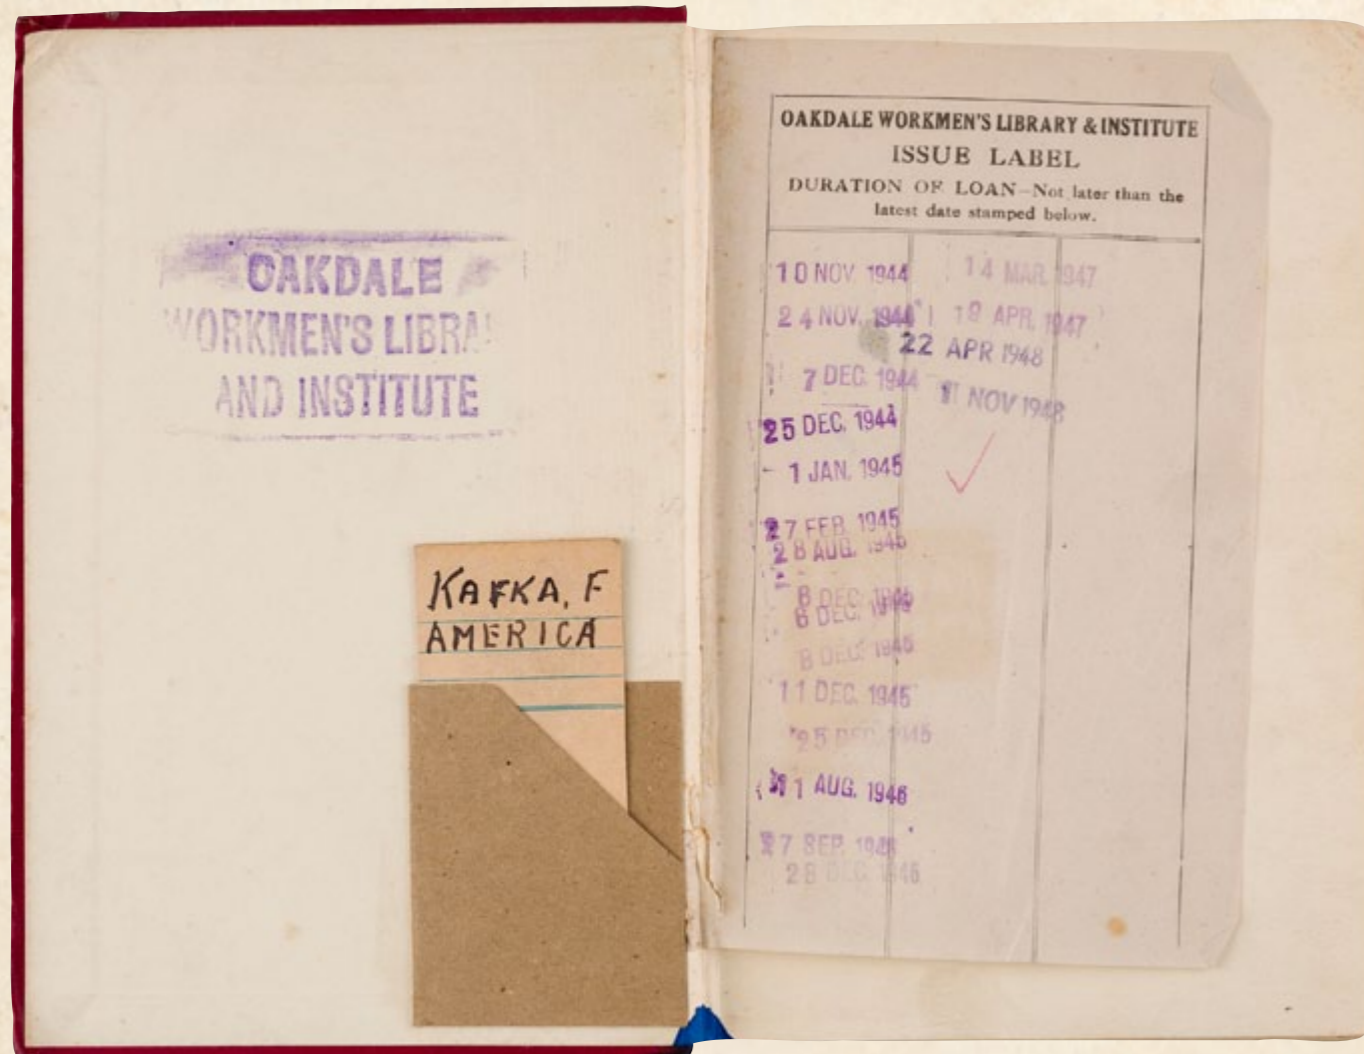 OAKDALE
WORKMEN'S LIBRA
AND INSTITUTE
KAFKA, F
AMERICA
OAKDALE WORKMEN'S LIBRARY & INSTITUTE
ISSUE LABEL
DURATION OF LOAN—Not later than the
latest date stamped below.
10 NOV. 1944
24 NOV. 1944
7 DEC. 1944
25 DEC. 1944
1 JAN. 1945
27 FEB. 1945
28 AUG. 1945
DEC.
6 DEC.
8 DEC. 1945
11 DEC. 1945
25 DEC. 1945
11 AUG. 1946
27 SEP.
28 DEC. 1946
14 MAR. 1947
APR. 1947
22 APR 1948
NOV 1948